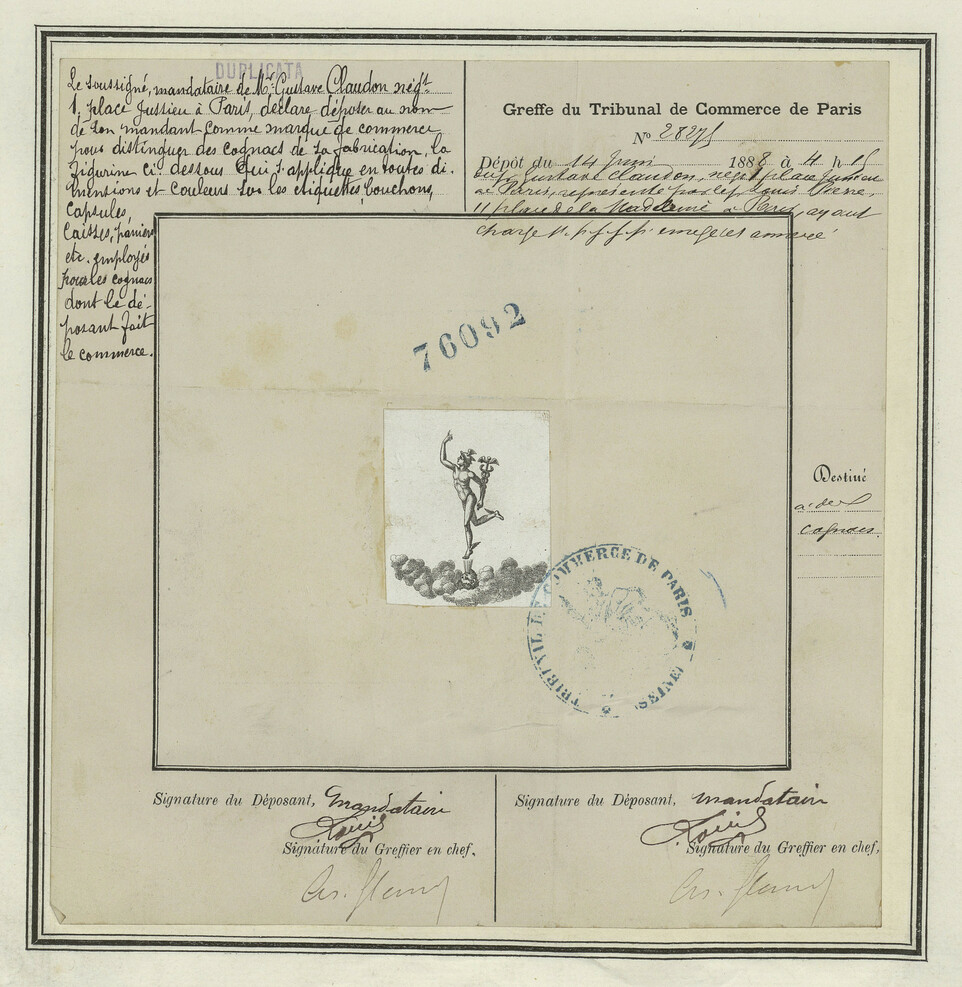 DUPLICATA
Le soussigné, mandataire de Mr. Gustave Claudon négt.
1, place Jussieu à Paris, déclare déposer au nom
de son mandant comme marque de commerce
pour distinguer des cognacs de sa fabrication, la
figurine ci-dessous qui s'applique en toutes di-
mensions et couleurs sur les etiquettes, bouchons,
capsules,
caisses, paniers
etc. employés
pour les cognacs
dont le dé-
posant fait
le commerce.
Greffe du Tribunal de Commerce de Paris
No 28275
Dépôt du 14 Juin 1888 à 4 h 15
Gustave Claudon, négt 1 place Jussieu
à Paris, représenté par le sr Louis
11, place de la Madeleine à Paris, ayant
charge
76092
Destiné
à des
cognacs.
TRIBUNAL DE COMMERCE DE PARIS
(SEINE)
Signature du Déposant, mandataire
Signature du Greffier en chef.
Signature du Déposant, mandataire
Signature du Greffier en chef,